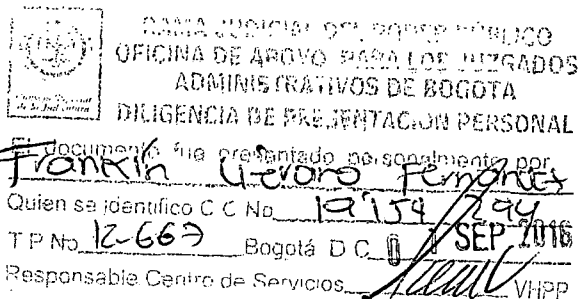 RAMA JUDICIAL DEL PODER PÚBLICO
OFICINA DE APOYO PARA LOS JUZGADOS
ADMINISTRATIVOS DE BOGOTA
DILIGENCIA DE PRESENTACION PERSONAL
El documento fue presentado personalmente por
Franklin
Quien se identifico C C No 19'154 294
T P No 12-667 Bogotá D C SEP 2016
Responsable Centro de Servicios VHPP